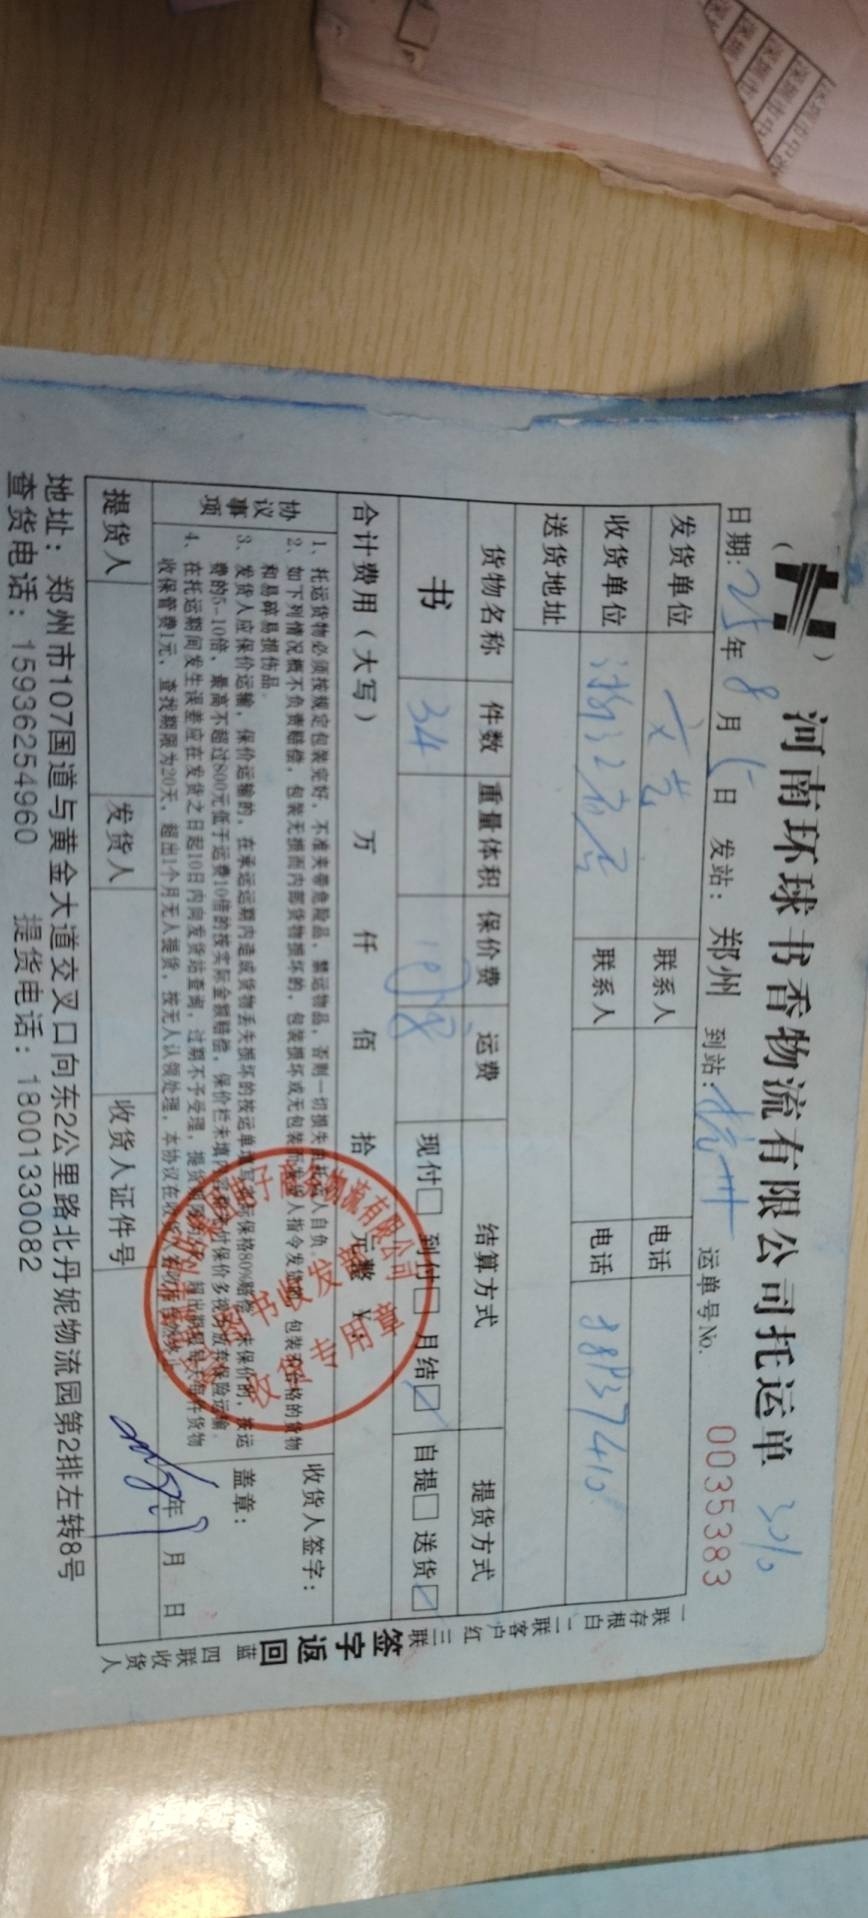 河南环球书香物流有限公司托运单
日期: 25年8月5日 发站: 郑州 到站: 杭州 运单号No. 0035383
发货单位 文艺 联系人 电话
收货单位 联系人 电话
送货地址
货物名称 件数 重量体积 保价费 运费 结算方式 提货方式
书 34 现付□ 到付□ 月结☑ 自提□ 送货☑
合计费用(大写) 万 仟 佰 拾 元整 ¥:
协议事项
1、托运货物必须按规定包装完好,不准夹带危险品,禁运物品,否则一切损失由托运人自负。
2、如下列情况概不负责赔偿,包装无损而内部货物损坏的,包装损坏或无包装而
和易碎易损伤品。
3、发货人应保价运输,保价运输的,在承运运期内造成货物丢失损坏的按运单
费的5-10倍,最高不超过800元低于运费10倍的按实际金额赔偿,
4、在托运期间发生误差应在发货之日起10日内向发货站查询,过期不予受理,
收保管费1元,查找期限为20天,超出1个月无人提货,按无人认领处理,
收货人签字:
盖章:
年 月 日
提货人 发货人 收货人证件号
地址: 郑州市107国道与黄金大道交叉口向东2公里路北丹妮物流园第2排左转8号
查货电话: 15936254960 提货电话: 18001330082
一联存根白 二联客户红 三联签字返回蓝 四联收货人
物流有限公司
图书收发部
收货专用章